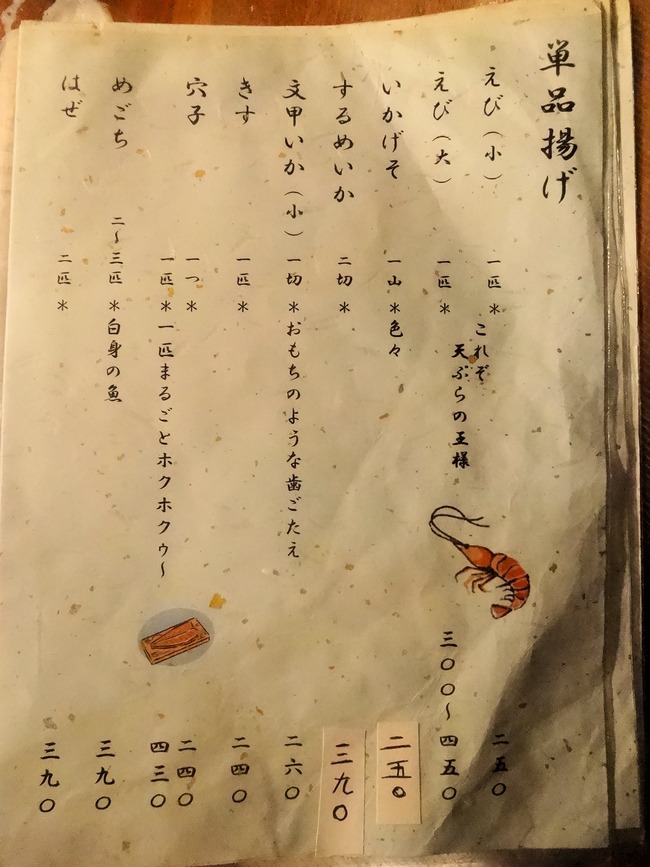 単品揚げ
えび（小） 一匹 ＊ 二五〇
えび（大） 一匹 ＊ 三〇〇〜四五〇
これぞ
天ぷらの王様
いかげそ 一山 ＊色々 二五〇
するめいか 二切 ＊ 三九〇
文甲いか（小） 一切 ＊おもちのような歯ごたえ 二六〇
きす 一匹 ＊ 二四〇
穴子 一つ ＊ 二四〇
一匹 ＊一匹まるごとホクホクゥ〜 四三〇
めごち 二〜三匹 ＊白身の魚 三九〇
はぜ 二匹 ＊ 三九〇